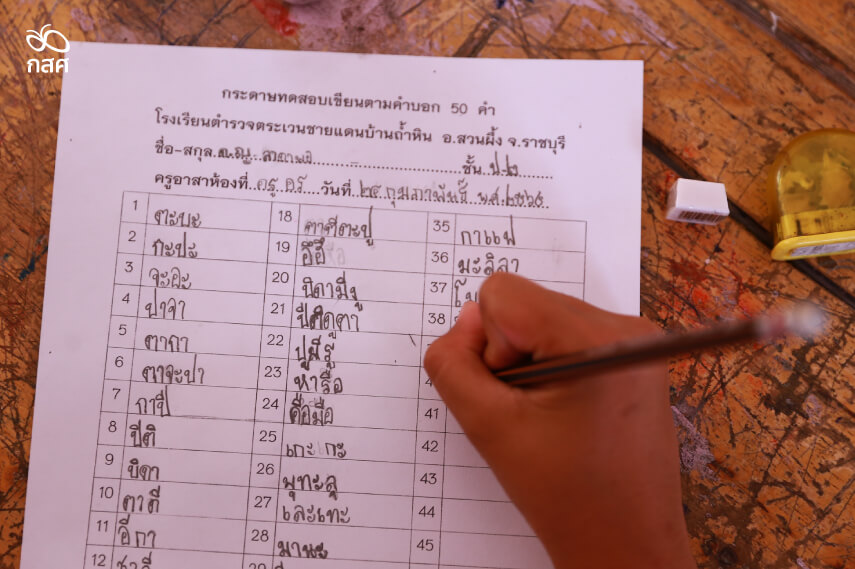 กสศ
กระดาษทดสอบเขียนตามคำบอก 50 คำ
โรงเรียนตำรวจตระเวนชายแดนบ้านถ้ำหิน อ.สวนผึ้ง จ.ราชบุรี
ชื่อ-สกุล ชั้น ป.๒
ครูอาสาห้องที่ ครู อร์ วันที่ ๒๔ กุมภาพันธ์ พ.ศ.๒๕๖๕
1 ตะบะ
2 กะปะ
3 จะอะ
4 ปาจา
5 ตากา
6 ตาจะปา
7 กาปี
8 ปีติ
9 บิดา
10 ตาดี
11 อีกา
12
18 ตาตีตะปู
19 อือื
20 บิดามีงู
21 ปีติดูตา
22 ปูมีรู
23 หารือ
24 คือมือ
25 เกะกะ
26 พุทะลุ
27 เละเทะ
28 มานะ
29
35 กาแฟ
36 มะลิลา
37
38
41
42
43
44
45